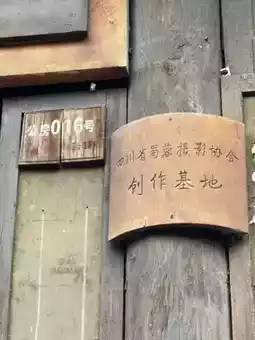 公房016号
四川省蜀蓉摄影协会
创作基地